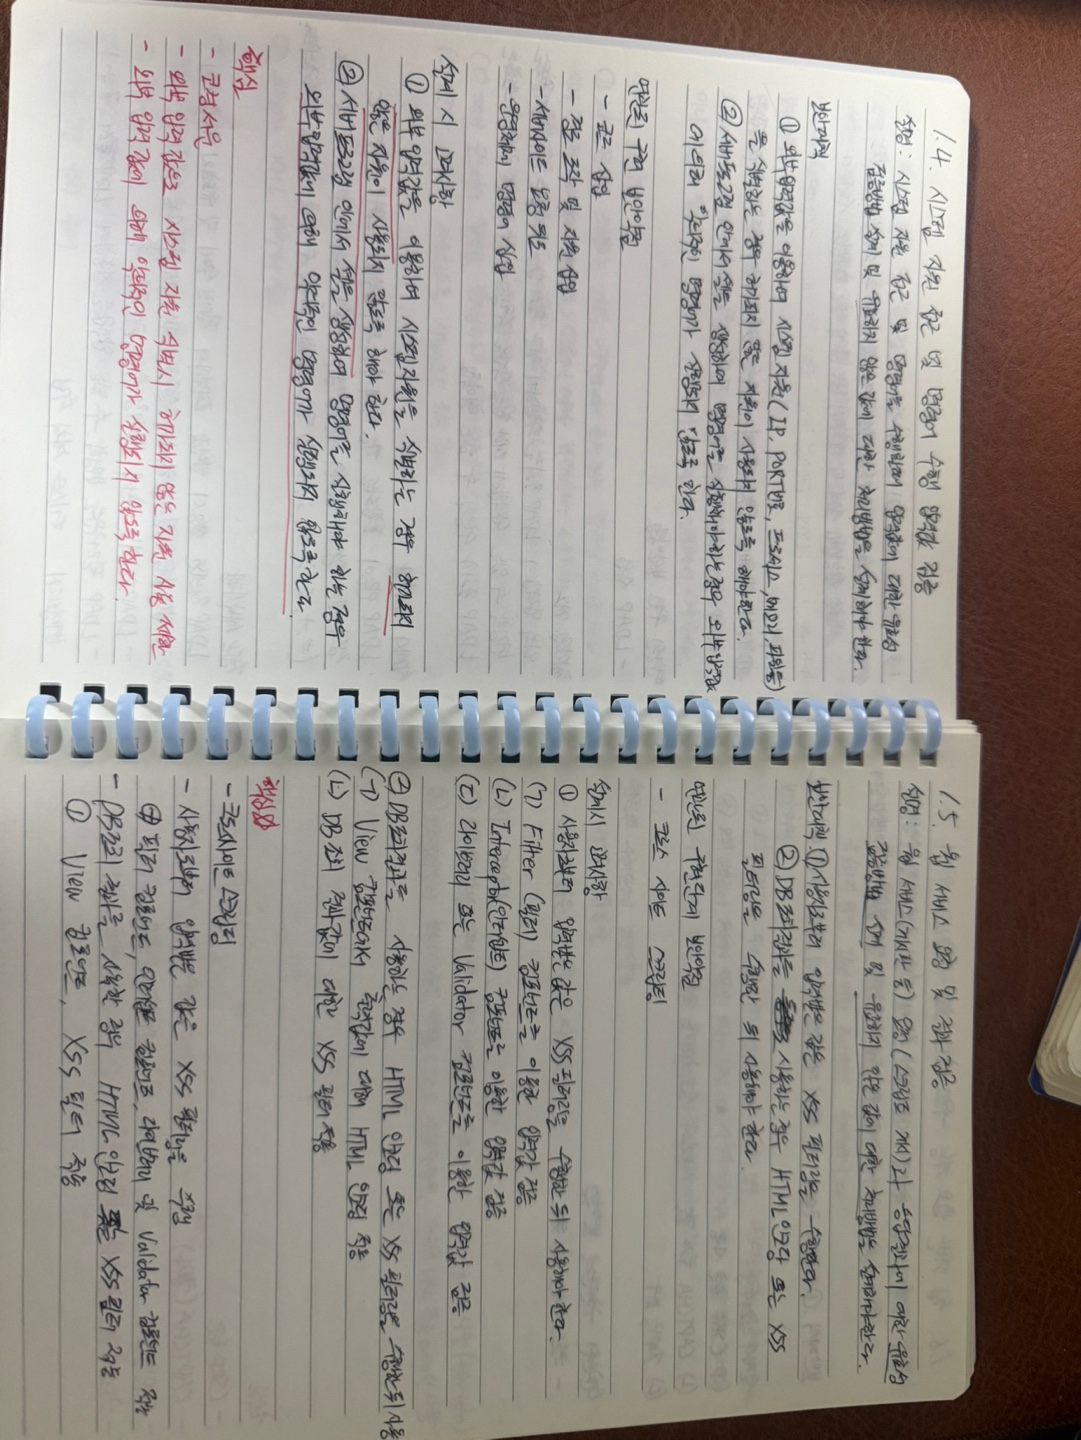 1.4. 시스템 자원 접근 및 명령어 수행 입력값 검증
설명 : 시스템 자원 접근 및 명령어를 수행할때 입력값에 대한 유효성
검증방법 설계 및 유효하지 않은 값에 대한 처리방법을 설계해야 한다.
보안대책
① 외부입력값을 이용하여 시스템 자원(IP, PORT번호, 프로세스, 메모리, 파일등)
을 식별하는 경우 허가되지 않은 자원이 사용되지 않도록 해야한다.
② 서버프로그램 안에서 쉘을 생성하여 명령어를 실행해야하는경우 외부입력값에
의해 악의적인 명령어가 실행되지 않도록 한다.
연관된 구현 보안약점
- 코드 삽입
- 경로 조작 및 자원 삽입
- 서버사이드 요청 위조
- 운영체제 명령어 삽입
설계 시 고려사항
① 외부 입력값을 이용하여 시스템자원을 식별하는 경우 허가되지
않은 자원이 사용되지 않도록 해야 한다.
② 서버프로그램 안에서 쉘을 생성하여 명령어를 실행해야 하는 경우
외부 입력값에 의해 악의적인 명령어가 실행되지 않도록 한다.
핵심
- 코드삽입
- 외부 입력값으로 시스템 자원 식별시 허가되지 않은 자원 사용 제한
- 외부 입력 값에 의해 악의적인 명령어가 실행되지 않도록 한다.
1.5. 웹 서비스 요청 및 결과 검증
설명 : 웹 서비스(게시판 등) 요청(스크립트 게시)과 응답결과에 대한 유효성
검증방법 설계 및 유효하지 않은 값에 대한 처리방법을 설계해야한다.
보안대책 ① 사용자로부터 입력받은 값은 XSS 필터링을 수행한다
② DB조회결과를 사용하는 경우 HTML인코딩 또는 XSS
필터링을 수행한 뒤 사용해야 한다.
연관된 구현단계 보안약점
- 크로스 사이트 스크립팅
설계시 고려사항
① 사용자로부터 입력받은 값은 XSS필터링을 수행한 뒤 사용해야 한다.
(ㄱ) Filter (필터) 컴포넌트를 이용한 입력값 검증
(ㄴ) Interceptor(인터셉트) 컴포넌트를 이용한 입력값 검증
(ㄷ) 라이브러리 또는 Validator 컴포넌트를 이용한 입력값 검증
② DB조회결과를 사용하는 경우 HTML 인코딩 또는 XSS 필터링을 수행한 뒤 사용
(ㄱ) View 컴포넌트에서 출력값에 대해 HTML 인코딩 적용
(ㄴ) DB 조회 결과값에 대한 XSS 필터 적용
핵심
- 크로스사이트 스크립팅
- 사용자로부터 입력받은 값은 XSS 필터링을 수행
필터 컴포넌트, 인터셉트 컴포넌트, 라이브러리 및 Validator 컴포넌트 적용
- DB조회 결과를 사용할 경우 HTML 인코딩 또는 XSS필터 적용
① View 컴포넌트, XSS 필터 적용